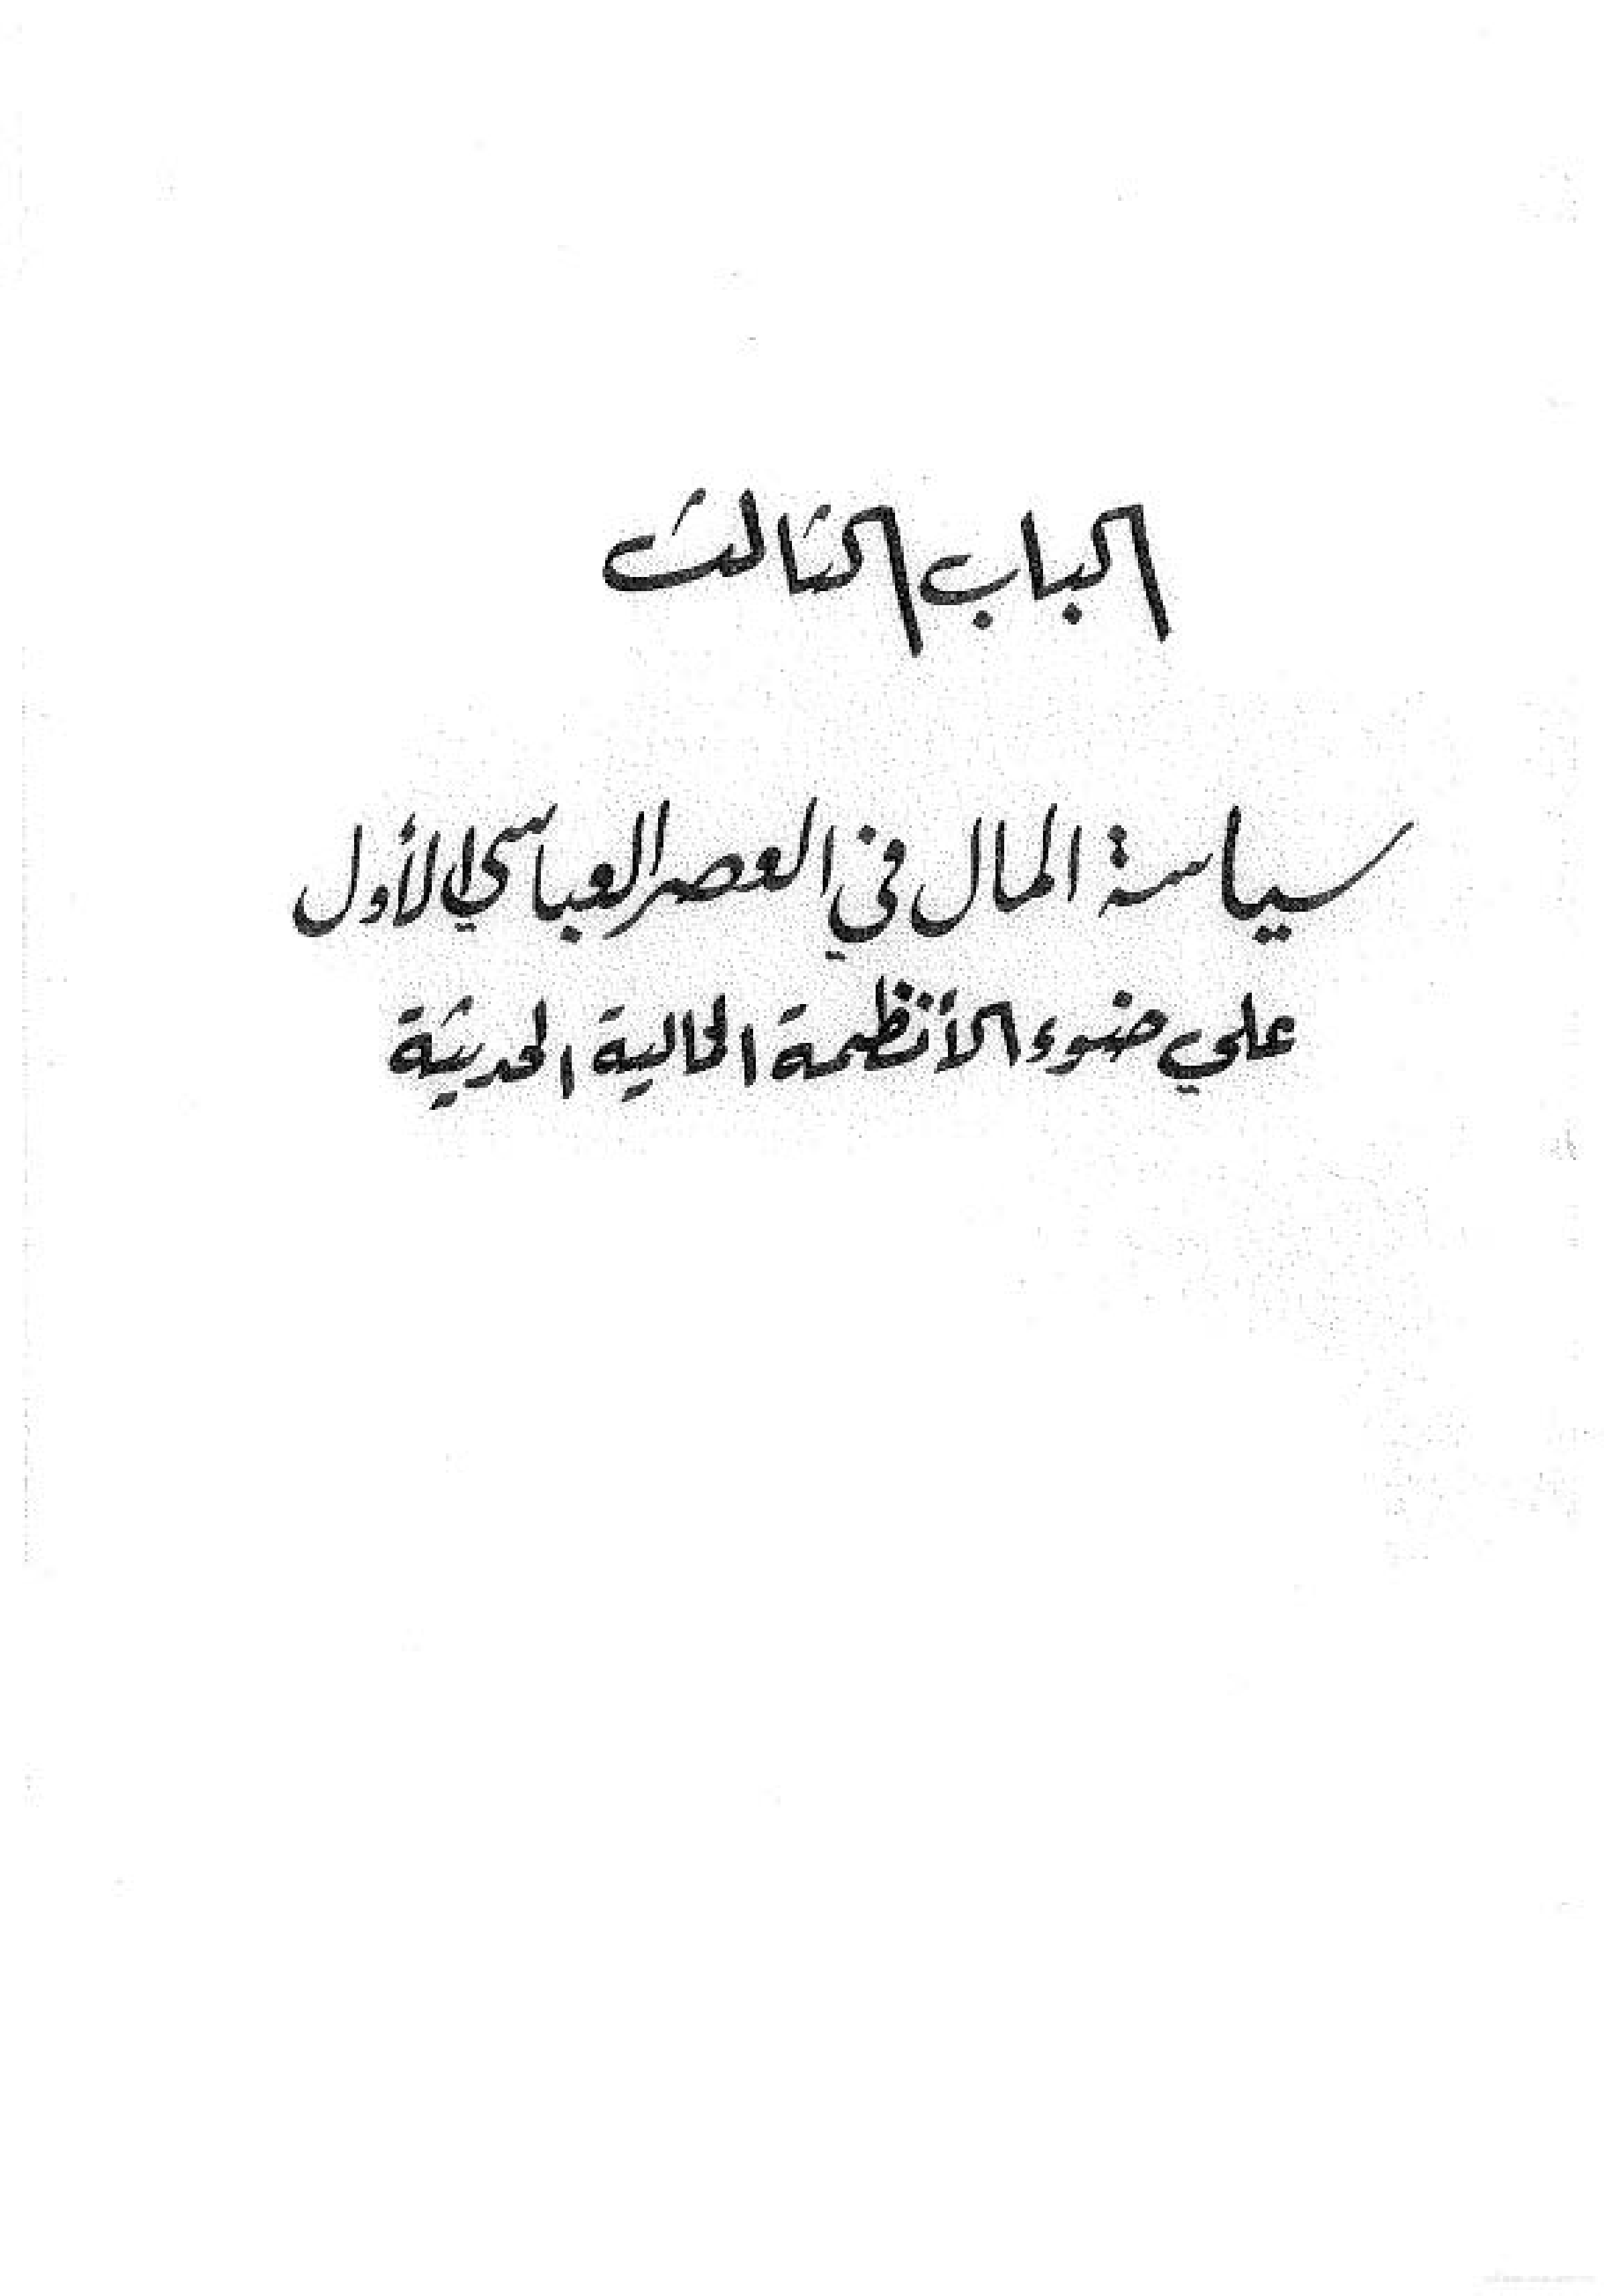 الباب الثالث
سياسة المال في العصر العباسي الأول
علي ضوء الأنظمة المالية الحديثة